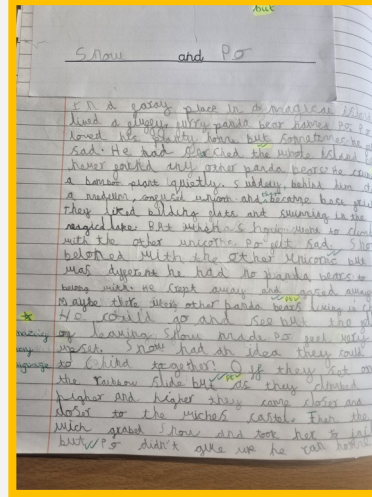 but
Snow and Po
In a faray place in a magical island
lived a fluggy furry panda bear names Po. Po
loved his home but sometimes he
sad. He had the whole island
never any other panda bears. He
a bamboo plant quietly. Suddenly, behind him
a medium, unicorn and became best
They liked building dens and swimming in the
magical lake. But when Snow went to
with the other unicorns Po felt sad. Snow
beloned with the other unicorns but
was different he had no panda bears to
belong with. He crept away and gased away
Maybe there were other panda bears living in
He could go and see but the
amazing of leaving Snow made Po feel very
language upset. Snow had an idea they could
to Chind together! If they got on
the rainbow slide but as they climbed
higher and higher they came closer and
closer to the wiches castel. Then the
wich grabed Snow and took her to jail
but Po didn't give up he ran